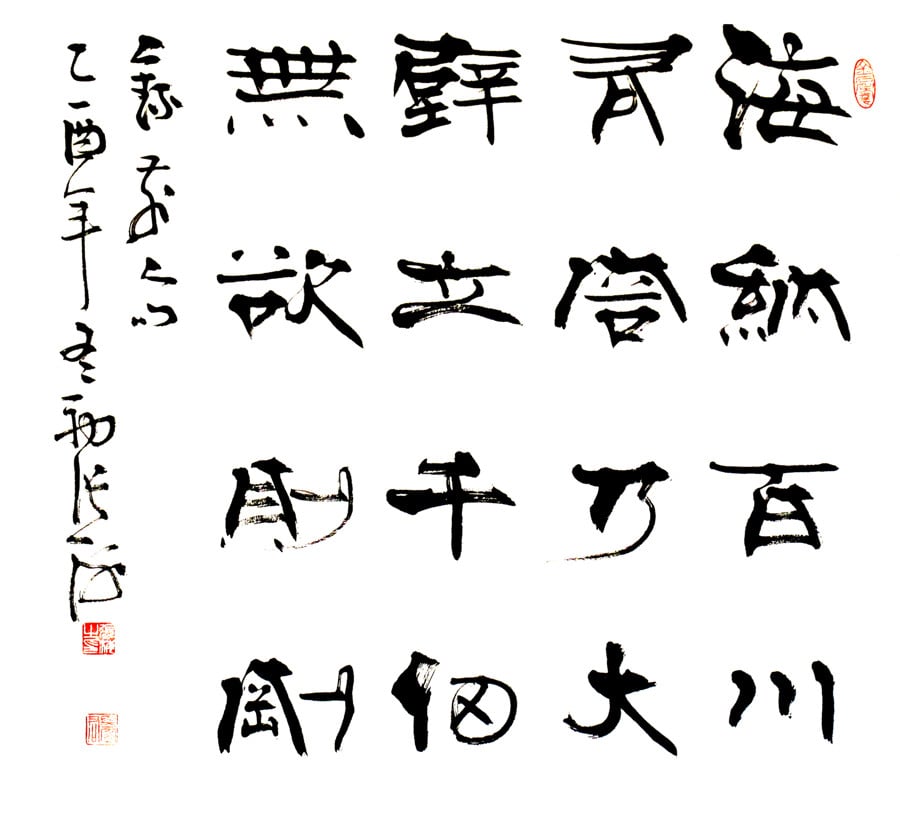 海納百川
有容乃大
壁立千仞
無欲則剛
乙酉年冬初